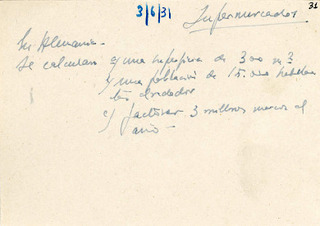 31
3/6/31
Supermercados
En Alemania -
Se calculan a) una superficie de 300 m 3
b) una población de 15.000 habitan
tes alrededor
c) facturar 3 millones marcos al
año -